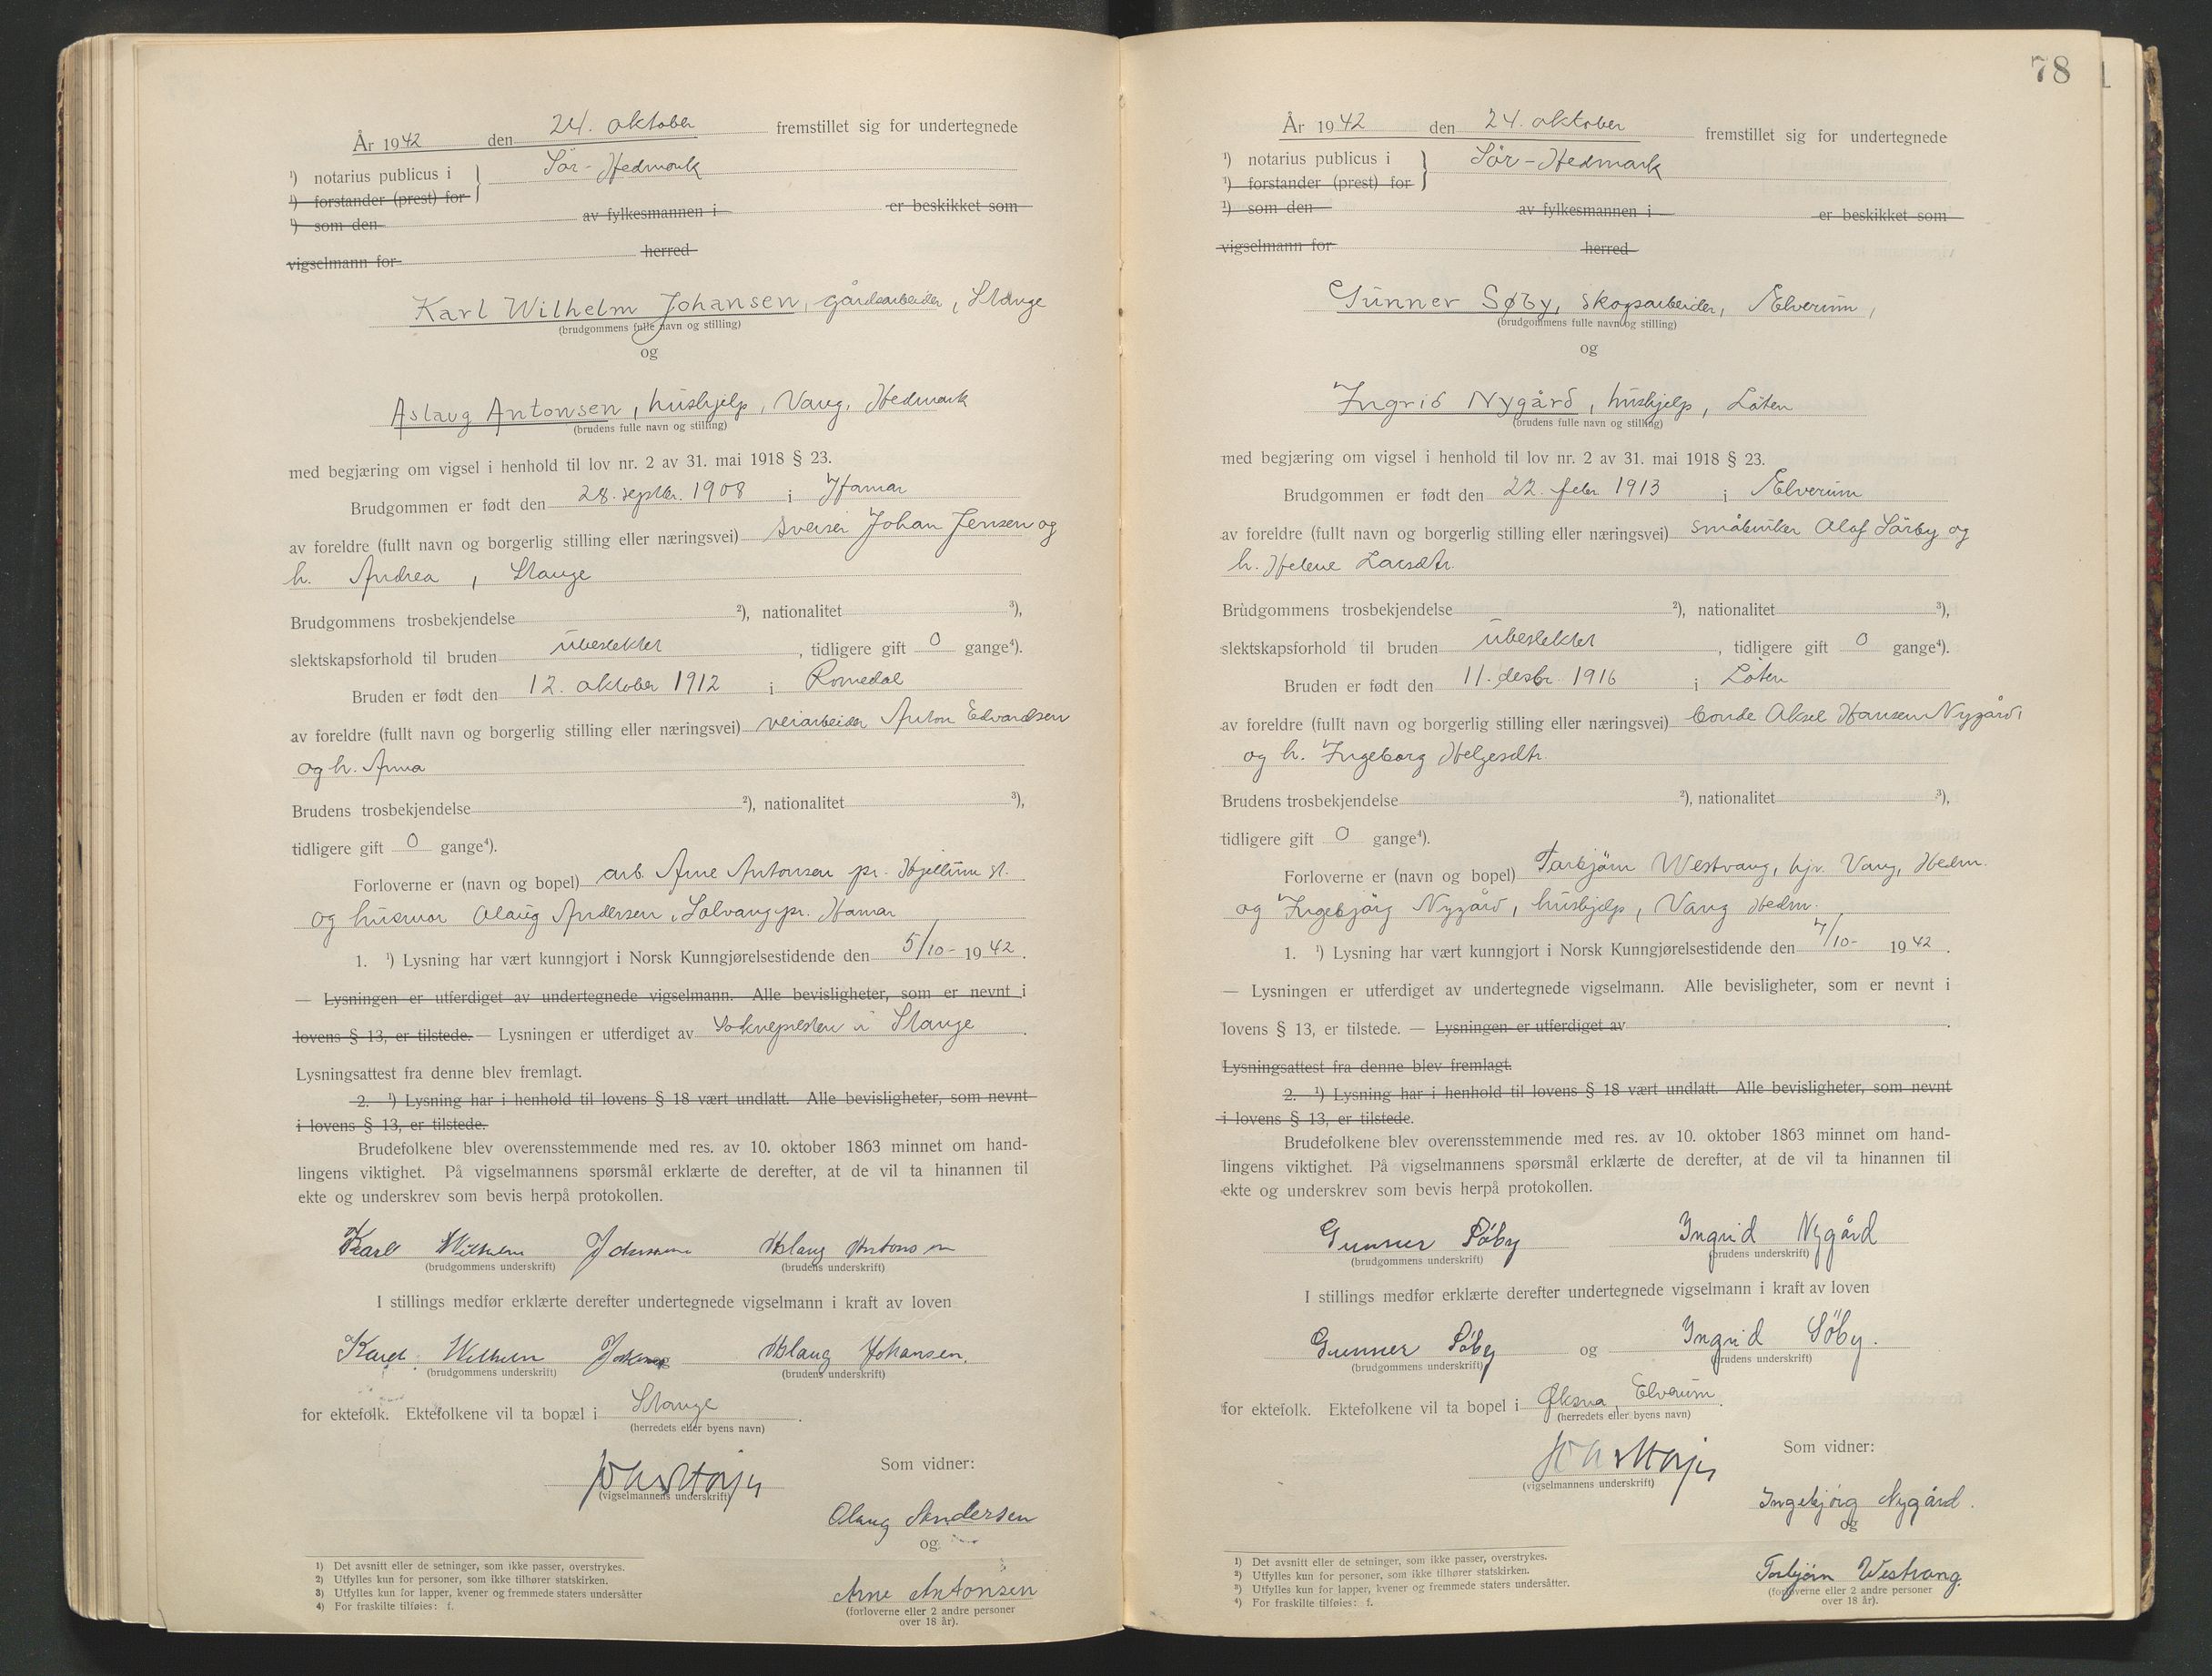 År 1942 den 24. oktober fremstillet sig for undertegnede
¹) notarius publicus i Sör-Hedmark
¹) forstander (prest) for
¹) som den av fylkesmannen i er beskikket som
vigselmann for herred
Karl Wilhelm Johansen, gårdsarbeider, Stange
(brudgommens fulle navn og stilling)
og
Aslaug Antonsen, hushjelp, Vang, Hedmark
(brudens fulle navn og stilling)
med begjæring om vigsel i henhold til lov nr. 2 av 31. mai 1918 § 23.
Brudgommen er født den 28. septbr. 1908 i Hamar
av foreldre (fullt navn og borgerlig stilling eller næringsvei) sveiser Johan Jensen og
h. Andrea, Stange
Brudgommens trosbekjendelse ²), nationalitet ³),
slektskapsforhold til bruden ubeslektet, tidligere gift 0 gange⁴).
Bruden er født den 12. oktober 1912 i Romedal
av foreldre (fullt navn og borgerlig stilling eller næringsvei) veiarbeider Anton Edvardsen
og h. Anna
Brudens trosbekjendelse ²), nationalitet ³),
tidligere gift 0 gange⁴).
Forloverne er (navn og bopel) arb. Arne Antonsen pr. Hjellum st.
og husmor Olaug Andersen, Solvang pr. Hamar
1. ¹) Lysning har vært kunngjort i Norsk Kunngjørelsestidende den 5/10- 1942.
— Lysningen er utferdiget av undertegnede vigselmann. Alle bevisligheter, som er nevnt i
lovens § 13, er tilstede. — Lysningen er utferdiget av Soknepresten i Stange.
Lysningsattest fra denne blev fremlagt.
2. ¹) Lysning har i henhold til lovens § 18 vært undlatt. Alle bevisligheter, som nevnt
i lovens § 13, er tilstede.
Brudefolkene blev overensstemmende med res. av 10. oktober 1863 minnet om hand-
lingens viktighet. På vigselmannens spørsmål erklærte de derefter, at de vil ta hinannen til
ekte og underskrev som bevis herpå protokollen.
Karl Wilhelm Johansen Aslaug Antonsen
(brudgommens underskrift) (brudens underskrift)
I stillings medfør erklærte derefter undertegnede vigselmann i kraft av loven
Karl Wilhelm Johansen og Aslaug Johansen.
(brudgommens underskrift) (brudens underskrift)
for ektefolk. Ektefolkene vil ta bopæl i Stange.
(herredets eller byens navn)
Som vidner:
(vigselmannens underskrift)
Olaug Andersen
og
Arne Antonsen
(forloverne eller 2 andre personer
over 18 år).
1) Det avsnitt eller de setninger, som ikke passer, overstrykes.
2) Utfylles kun for personer, som ikke tilhører statskirken.
3) Utfylles kun for lapper, kvener og fremmede staters undersåtter
4) For fraskilte tilføies: f.
78
År 1942 den 24. oktober fremstillet sig for undertegnede
¹) notarius publicus i Sör-Hedmark
¹) forstander (prest) for
¹) som den av fylkesmannen i er beskikket som
vigselmann for herred
Gunner Søby, skogsarbeider, Elverum,
(brudgommens fulle navn og stilling)
og
Ingrid Nygård, hushjelp, Löten
(brudens fulle navn og stilling)
med begjæring om vigsel i henhold til lov nr. 2 av 31. mai 1918 § 23.
Brudgommen er født den 22. febr 1913 i Elverum
av foreldre (fullt navn og borgerlig stilling eller næringsvei) småbruker Olaf Sörby og
h. Helene Larsdtr.
Brudgommens trosbekjendelse ²), nationalitet ³),
slektskapsforhold til bruden ubeslektet, tidligere gift 0 gange⁴).
Bruden er født den 11. desbr. 1916 i Löten
av foreldre (fullt navn og borgerlig stilling eller næringsvei) bonde Aksel Hansen Nygård,
og h. Ingeborg Helgesdtr.
Brudens trosbekjendelse ²), nationalitet ³),
tidligere gift 0 gange⁴).
Forloverne er (navn og bopel) Torbjörn Westvang, hjv. Vang, Hedm.
og Ingebjörg Nygård, hushjelp, Vang Hedm.
1. ¹) Lysning har vært kunngjort i Norsk Kunngjørelsestidende den 7/10- 1942.
— Lysningen er utferdiget av undertegnede vigselmann. Alle bevisligheter, som er nevnt i
lovens § 13, er tilstede. — Lysningen er utferdiget av .
Lysningsattest fra denne blev fremlagt.
2. ¹) Lysning har i henhold til lovens § 18 vært undlatt. Alle bevisligheter, som nevnt
i lovens § 13, er tilstede.
Brudefolkene blev overensstemmende med res. av 10. oktober 1863 minnet om hand-
lingens viktighet. På vigselmannens spørsmål erklærte de derefter, at de vil ta hinannen til
ekte og underskrev som bevis herpå protokollen.
Gunner Söby Ingrid Nygård
(brudgommens underskrift) (brudens underskrift)
I stillings medfør erklærte derefter undertegnede vigselmann i kraft av loven
Gunner Söby og Ingrid Söby.
(brudgommens underskrift) (brudens underskrift)
for ektefolk. Ektefolkene vil ta bopel i Øksna, Elverum.
(herredets eller byens navn)
Som vidner:
(vigselmannens underskrift)
Ingebjörg Nygård.
og
Torbjörn Westvang.
(forloverne eller 2 andre personer
over 18 år).
¹) Det avsnitt eller de setninger, som ikke passer, overstrykes.
²) Utfylles kun for personer, som ikke tilhører statskirken.
³) Utfylles kun for lapper, kvener og fremmede staters undersåtter.
⁴) For fraskilte tilføies: f.